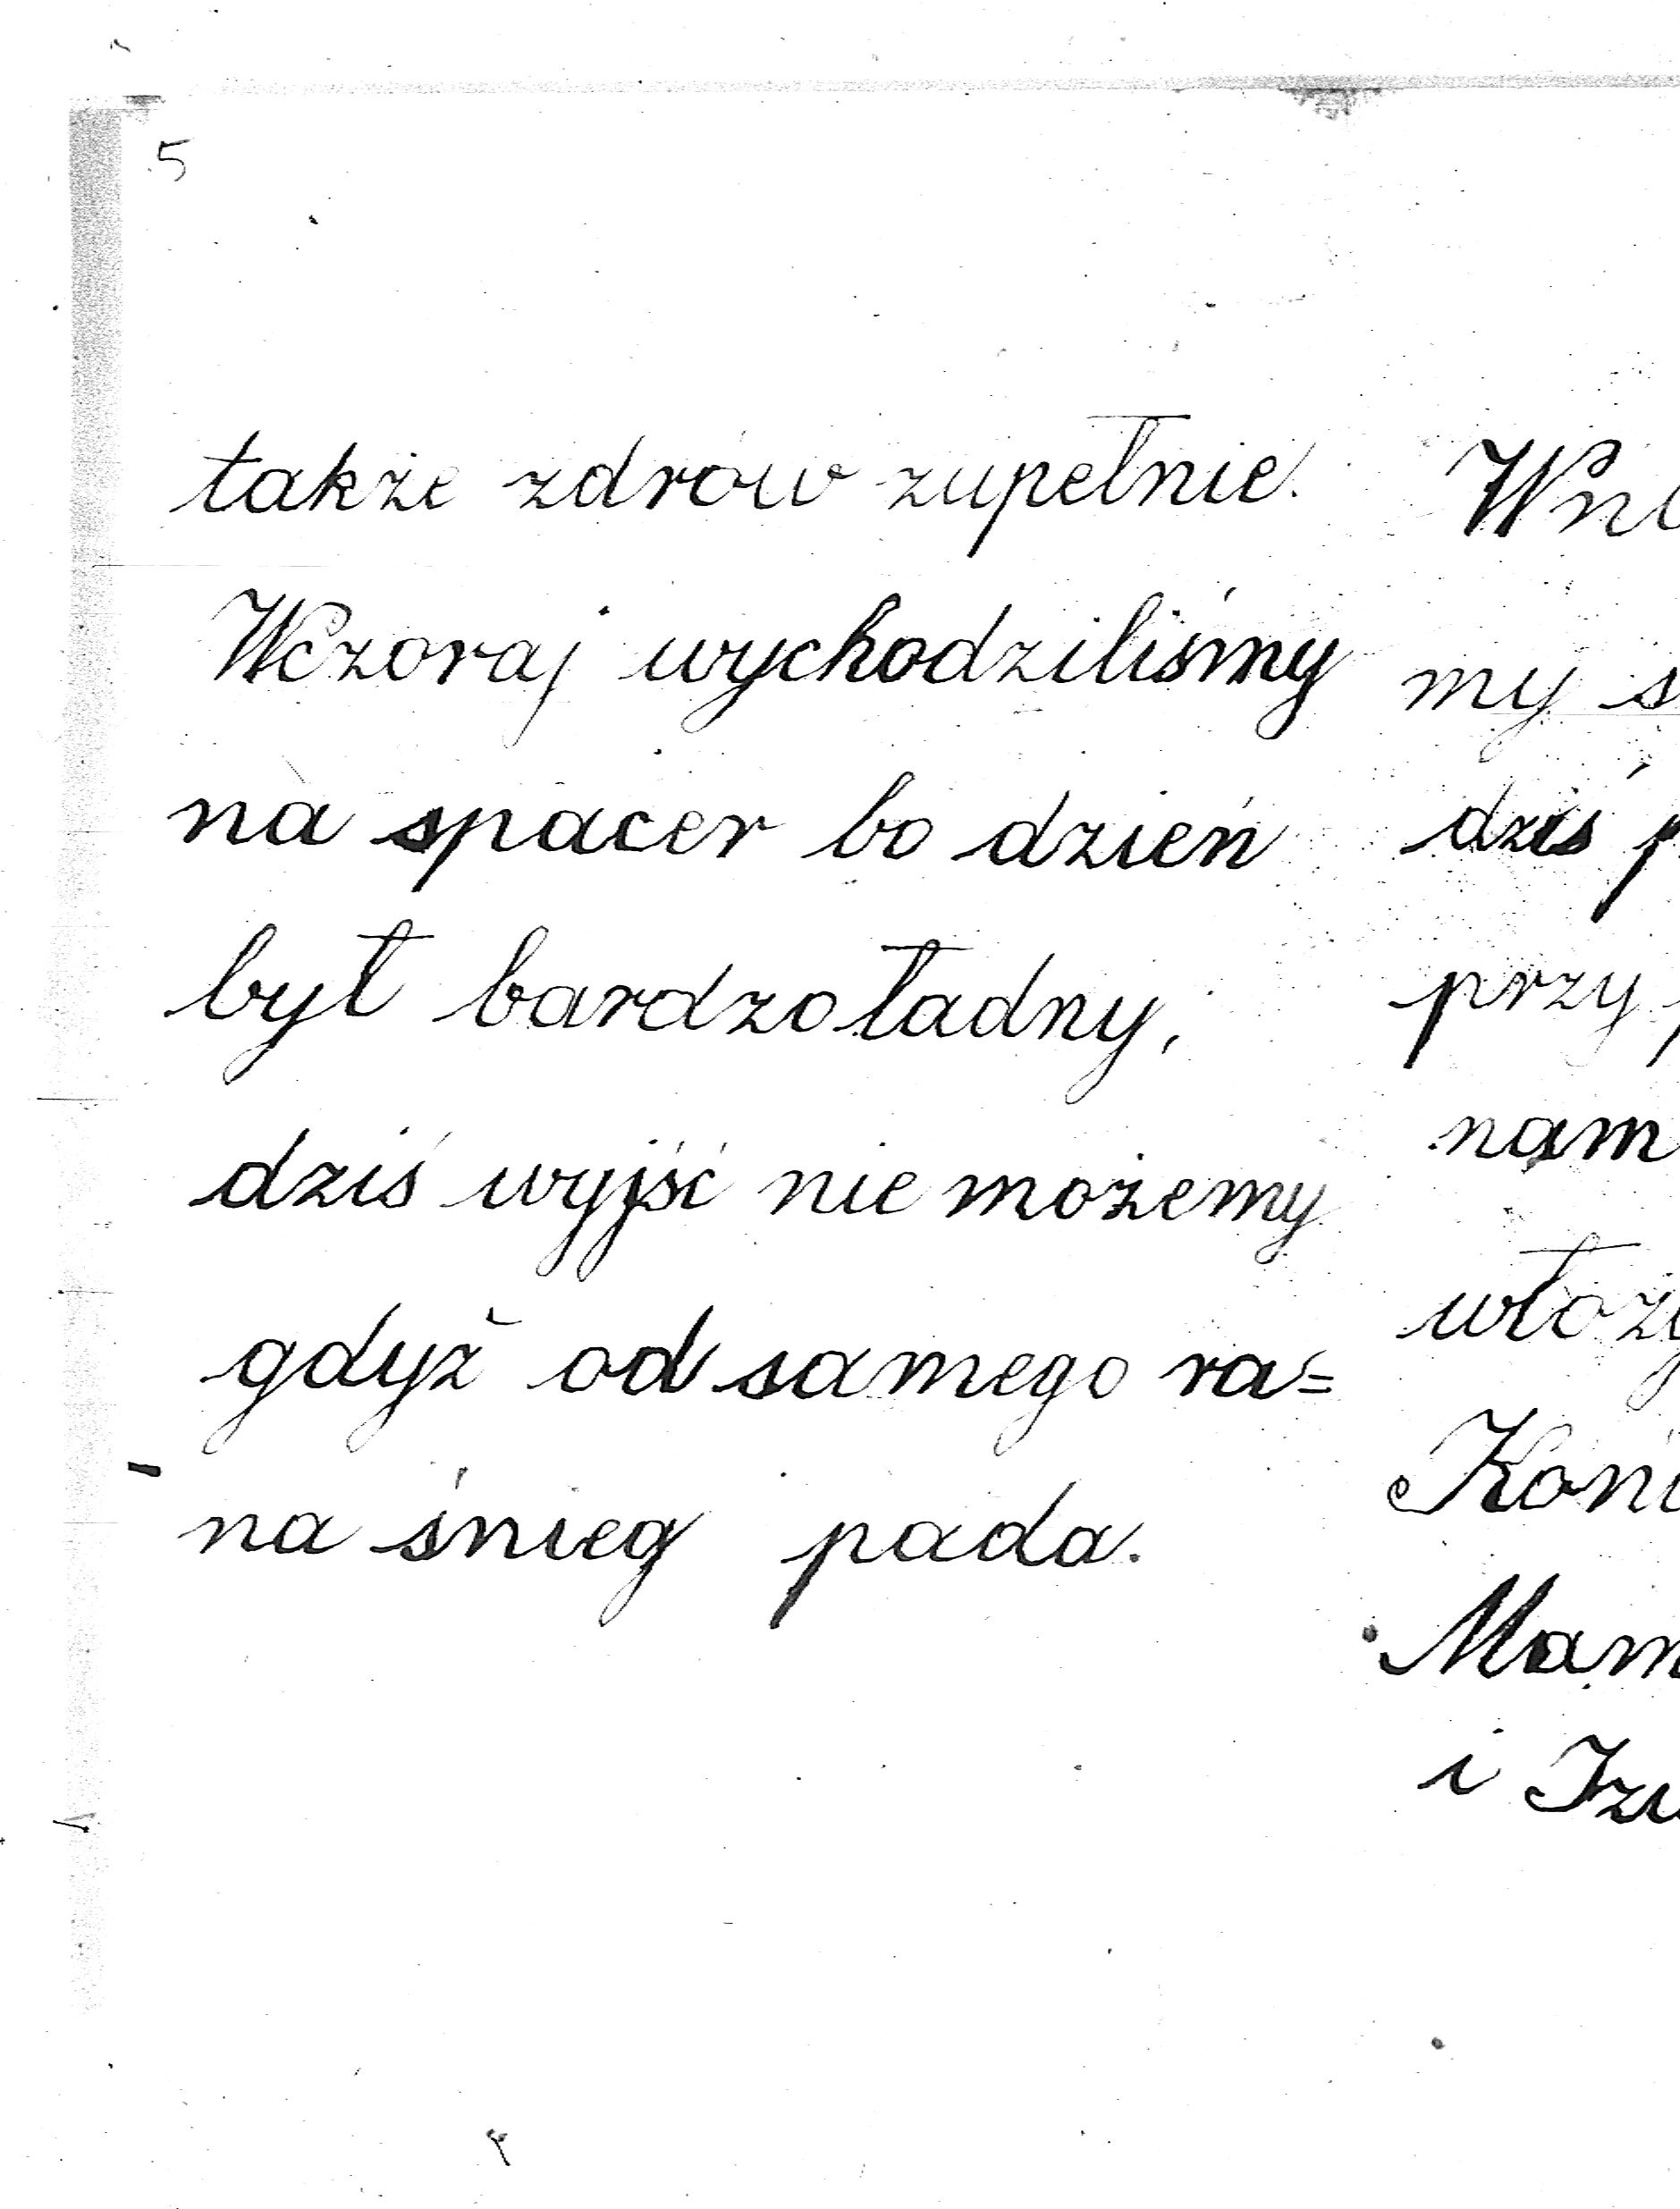 5
także zdrów zupełnie.
Wczoraj wychodziliśmy
na spacer bo dzień
był bardzo ładny,
dziś wyjść nie możemy
gdyż od samego ra=
na śnieg pada.
my
dziś
przy
nam
i